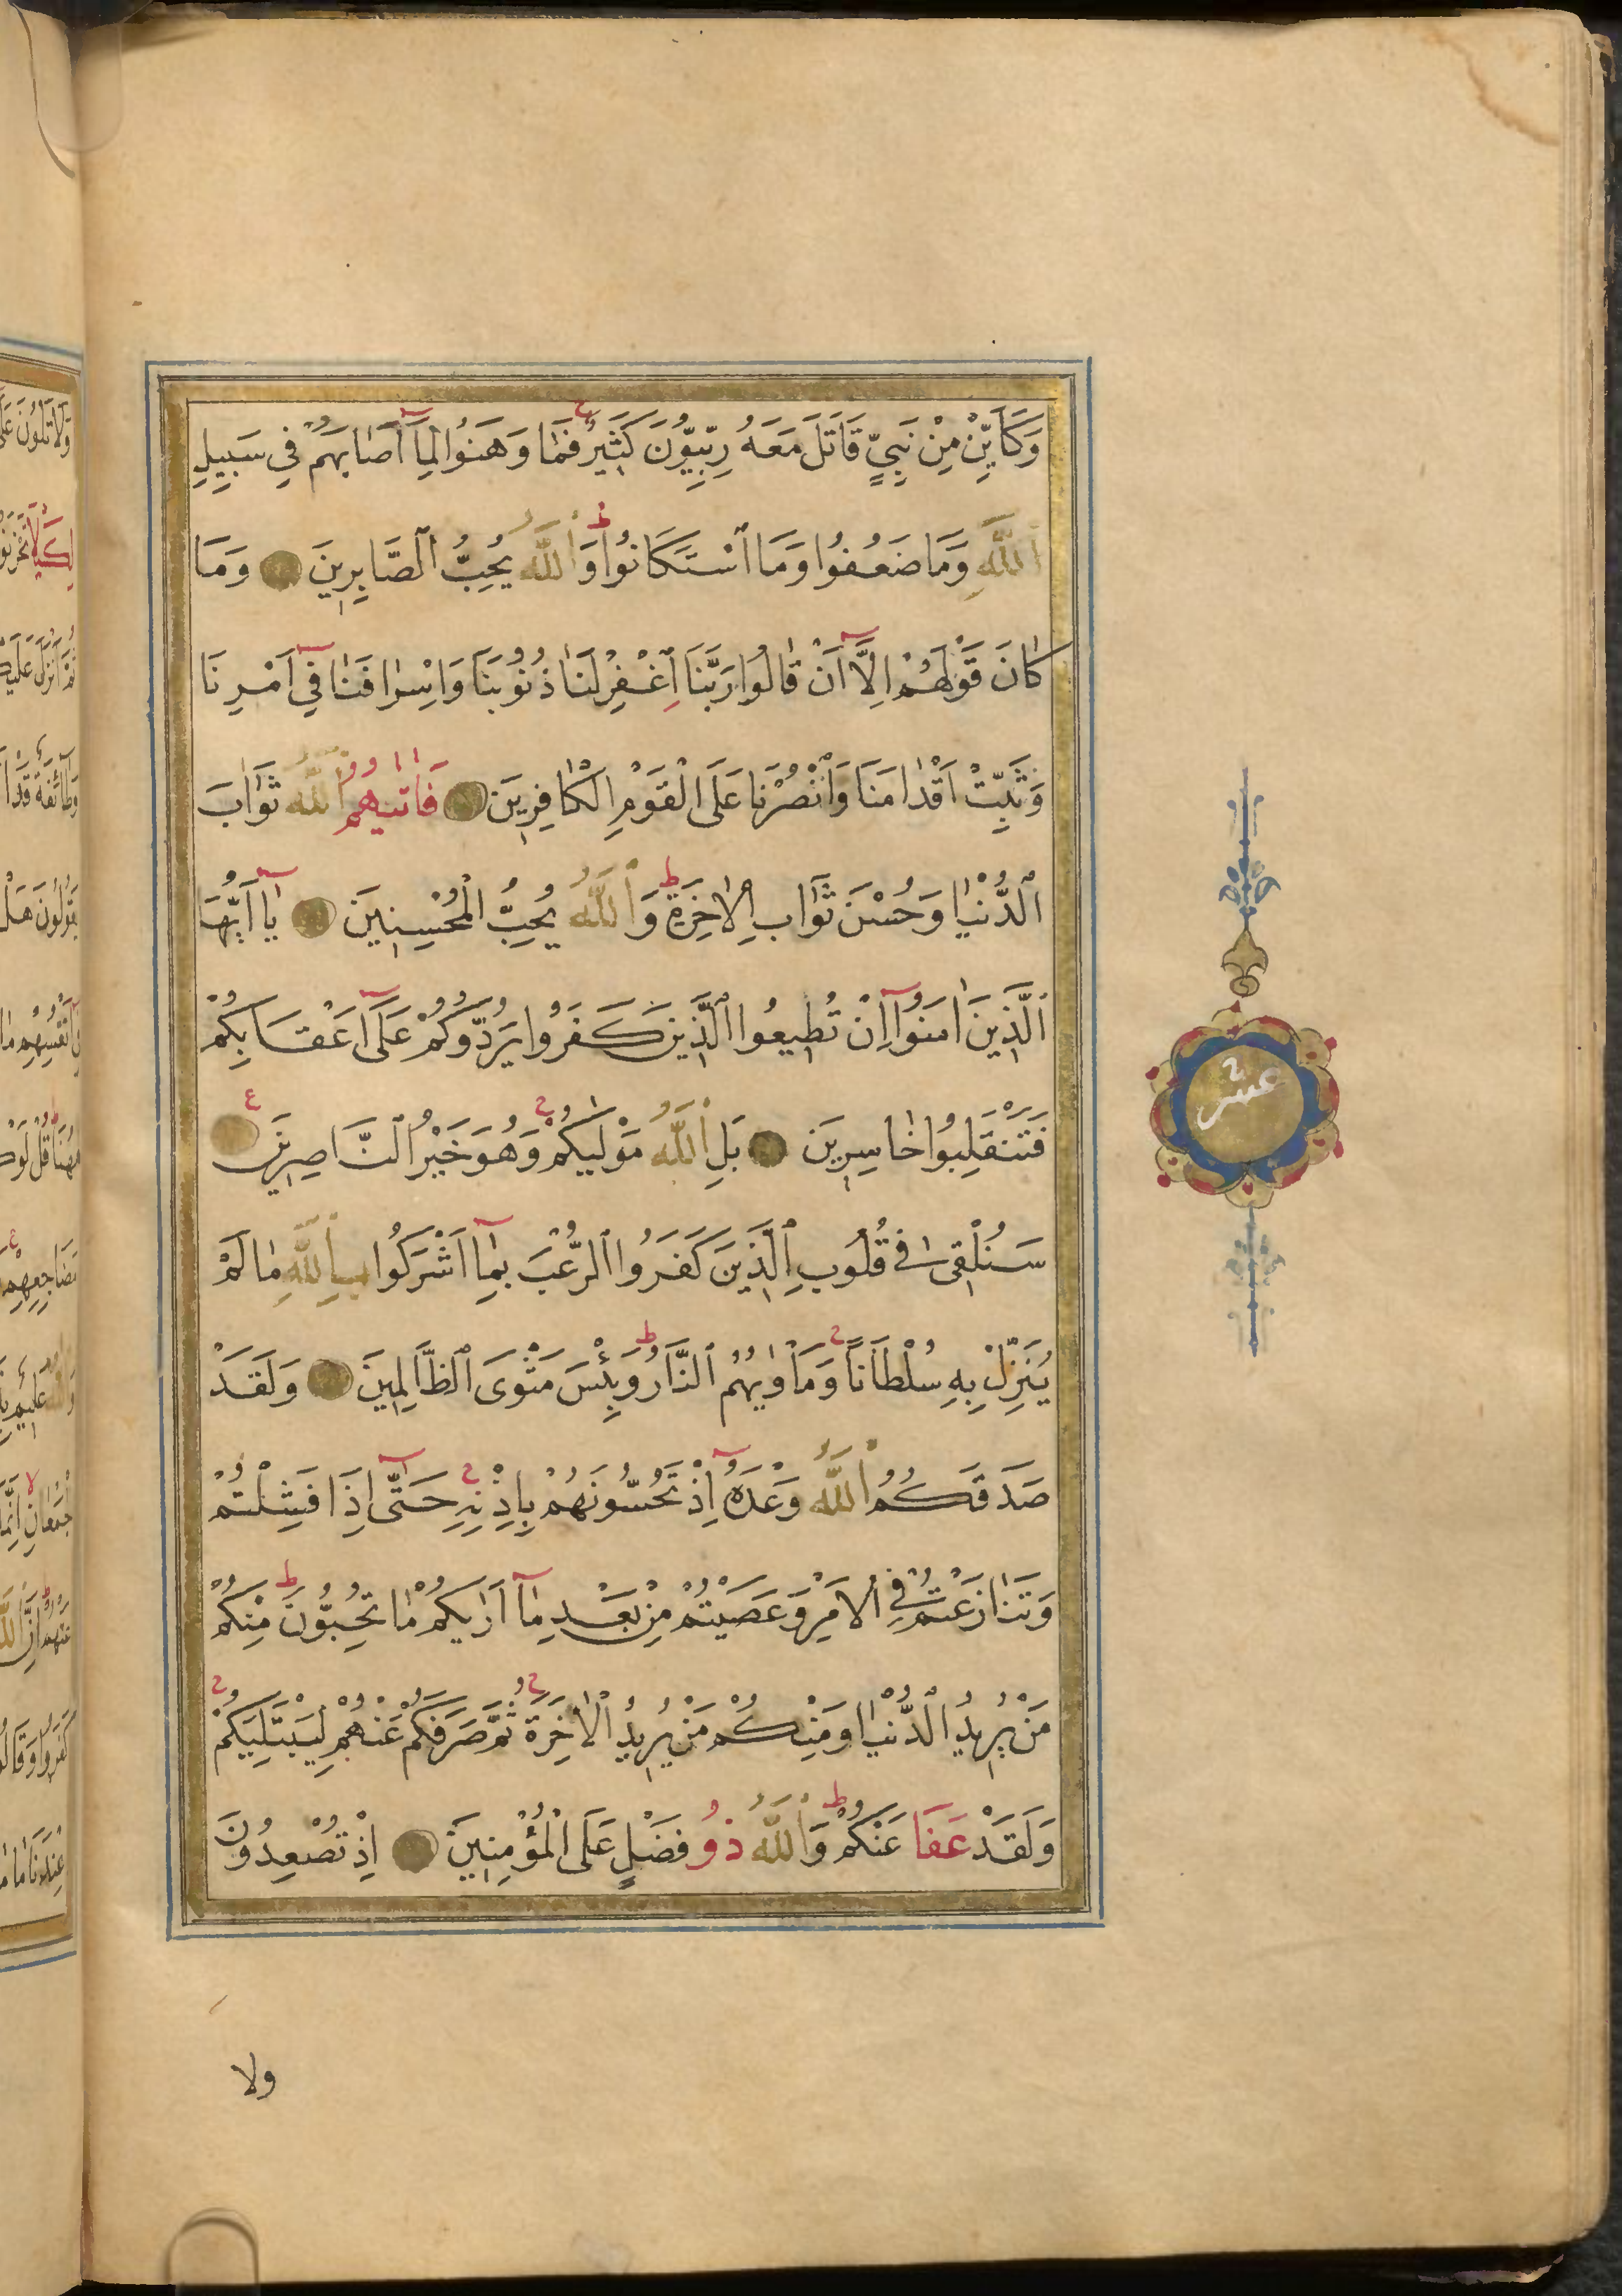 وَكَاَيِّنْ مِنْ نَبِيٍّ قَاتَلَ مَعَهُ رِبِّيُّونَ كَثِيرٌ فَمَا وَهَنُوا لِمَآ اَصَابَهُمْ فِي سَبِيلِ
اللّٰهِ وَمَا ضَعُفُوا وَمَا اسْتَكَانُوا وَاللّٰهُ يُحِبُّ الصَّابِرِينَ وَمَا
كَانَ قَوْلَهُمْ اِلَّآ اَنْ قَالُوا رَبَّنَا اغْفِرْ لَنَا ذُنُوبَنَا وَاِسْرَافَنَا فِيٓ اَمْرِنَا
وَثَبِّتْ اَقْدَامَنَا وَانْصُرْنَا عَلَى الْقَوْمِ الْكَافِرِينَ فَاٰتٰيهُمُ اللّٰهُ ثَوَابَ
الدُّنْيَا وَحُسْنَ ثَوَابِ الْاٰخِرَةِ وَاللّٰهُ يُحِبُّ الْمُحْسِنِينَ يَآ اَيُّهَا
الَّذِينَ اٰمَنُوٓا اِنْ تُطِيعُوا الَّذِينَ كَفَرُوا يَرُدُّوكُمْ عَلٰٓى اَعْقَابِكُمْ
فَتَنْقَلِبُوا خَاسِرِينَ بَلِ اللّٰهُ مَوْلٰيكُمْ وَهُوَ خَيْرُ النَّاصِرِينَ ع
سَنُلْقِى فِي قُلُوبِ الَّذِينَ كَفَرُوا الرُّعْبَ بِمَآ اَشْرَكُوا بِاللّٰهِ مَا لَمْ
يُنَزِّلْ بِهِ سُلْطَانًا وَمَاْوٰيهُمُ النَّارُ وَبِئْسَ مَثْوَى الظَّالِمِينَ وَلَقَدْ
صَدَقَكُمُ اللّٰهُ وَعْدَهُٓ اِذْ تَحُسُّونَهُمْ بِاِذْنِهِ حَتّٰٓى اِذَا فَشِلْتُمْ
وَتَنَازَعْتُمْ فِي الْاَمْرِ وَعَصَيْتُمْ مِنْ بَعْدِ مَآ اَرٰيكُمْ مَا تُحِبُّونَ مِنْكُمْ
مَنْ يُرِيدُ الدُّنْيَا وَمِنْكُمْ مَنْ يُرِيدُ الْاٰخِرَةَ ثُمَّ صَرَفَكُمْ عَنْهُمْ لِيَبْتَلِيَكُمْ
وَلَقَدْ عَفَا عَنْكُمْ وَاللّٰهُ ذُو فَضْلٍ عَلَى الْمُؤْمِنِينَ اِذْ تُصْعِدُونَ
ولا
عشر